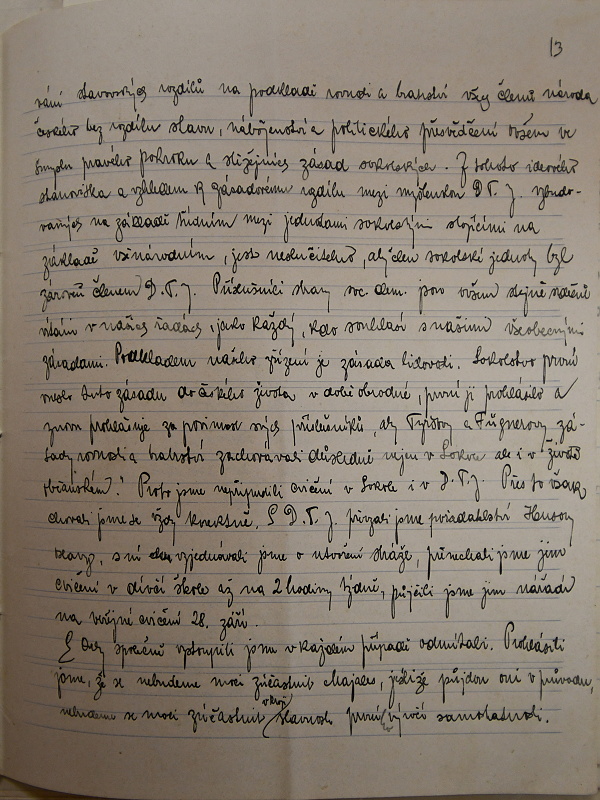 13
sání stavovských rozdílů na podkladě rovnosti a bratrství všech členů národa
českého bez rozdílu stavu, náboženství a politického přesvědčení ovšem ve
smyslu pravého pokroku a stěžejních zásad sokolských. Z tohoto ideového
stanoviska a vzhledem k zásadnímu rozdílu mezi myšlenkou D.T.J. vybudo-
vaných na základě třídním mezi jednotami sokolskými stojícími na
základě všenárodním, jest neslučitelno, aby člen sokolské jednoty byl
zároveň členem D.T.J. Příslušníci strany soc. dem. jsou ovšem stejně srdečně
vítáni v našich řadách, jako každý, kdo souhlasí s našimi všeobecnými
zásadami. Podkladem našeho zřízení je zásada lidovosti. Sokolstvo první
neslo tuto zásadu do českého života v době obrodné, první ji prohlásilo a
znovu prohlašuje za povinnost svých příslušníků, aby Tyršovy a Fügnerovy zá-
sady rovnosti a bratrství zachovávali důsledně nejen v Sokole ale i v životě
občanském." Proto jsme nepřipustili cvičení v Sokole i v D.T.J. Přes to však
chovali jsme se vždy korektně. S D.T.J. převzali jsme pořadatelství Husovy
oslavy, s ní vyjednávali jsme o utvoření stráže, přenechali jsme jim
cvičení v dívčí škole až na 2 hodiny týdně, půjčili jsme jim nářadí
na veřejné cvičení 28. září.
společně vystoupili jsme v každém případě odmítali. Prohlásili
jsme, že se nebudeme moci zúčastnit Majales, jestliže půjdou oni v průvodu,
nebudeme se moci zúčastnit slavnosti první výročí samostatnosti.